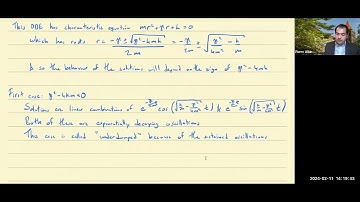 This ODE has characteristic equation mr²+γr+k=0
which has roots r = (-γ ± √(γ²-4mk))/2m = -γ/2m ± √(γ²/4m² - k/m)
& so the behavior of the solutions will depend on the sign of γ²-4mk
First case: γ²-4km<0
Solutions are linear combinations of e^(-γ/2m t) cos(√(k/m - γ²/4m²) t) & e^(-γ/2m t) sin(√(k/m - γ²/4m²) t)
Both of these are exponentially decaying oscillations
This case is called "underdamped" because of the sustained oscillations
2024-02-11 14:19:43